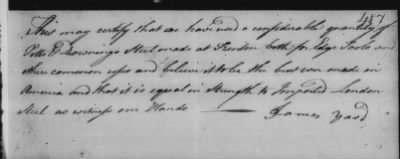 457
This may certify that we have used a considerable quantity of
Pette & Downings Steel made at Trenton both for Edge Tools and
other common uses and believe it to be the best ever made in
America and that it is equal in Strength to Imported London
Steel as witness our Hands
James Yard